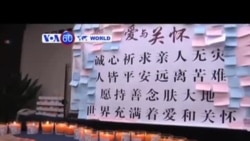 VOA 60 WORLD
爱与关怀
诚心祈求亲人无灾
人皆平安远离苦难
愿持善念肤大地
世界充满着爱和关怀